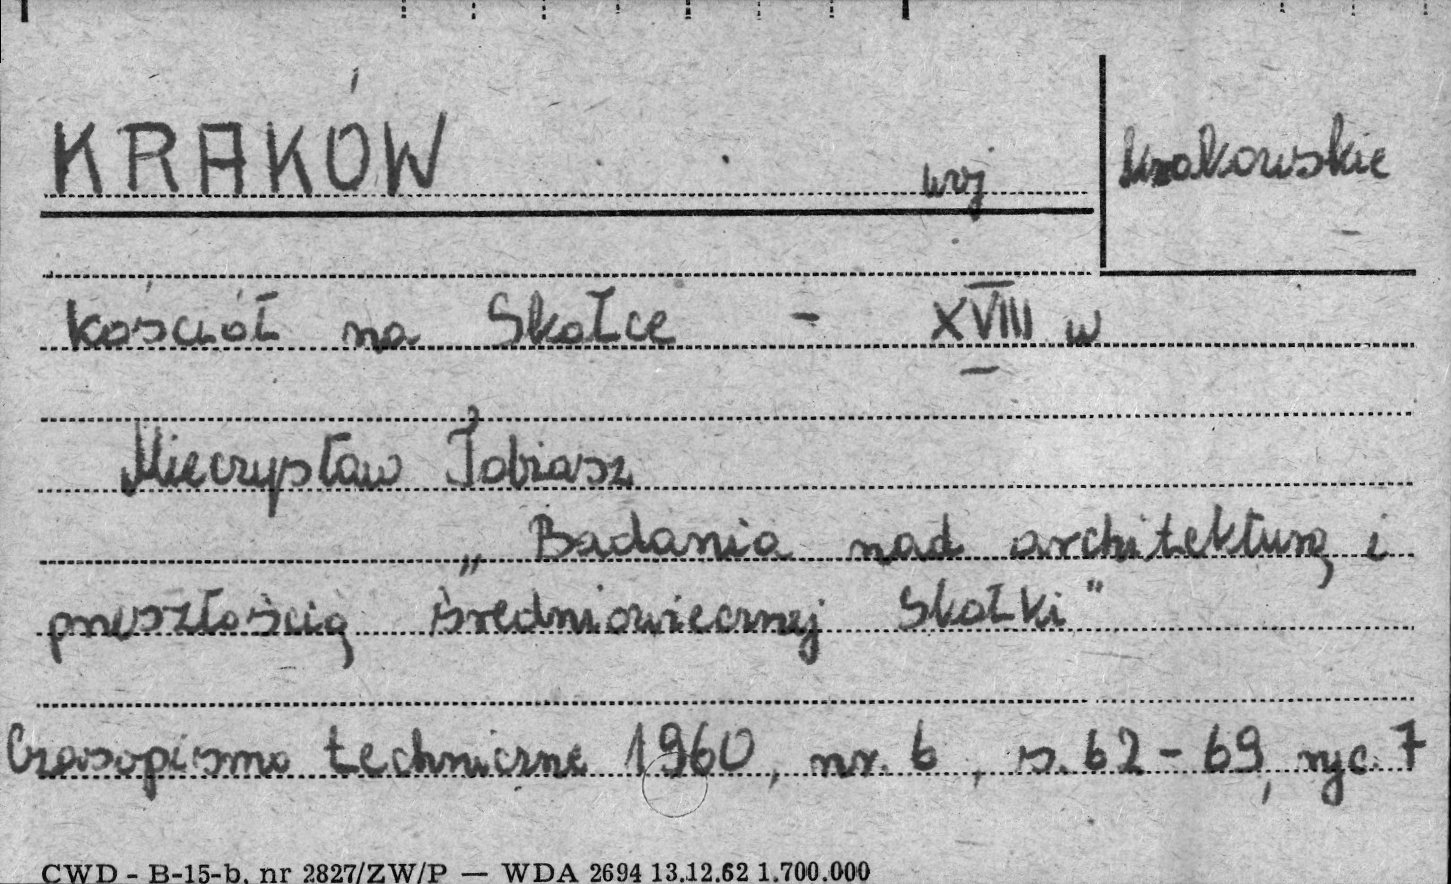 KRAKÓW woj krakowskie
kościół na Skałce - XVIII w
Mieczysław Tobiasz
„Badania nad architekturą i
przeszłością średniowiecznej Skałki"
Czasopismo techniczne 1960, nr. 6, s. 62-69, ryc. 7
CWD - B-15-b, nr 2827/ZW/P — WDA 2694 13.12.62 1.700.000